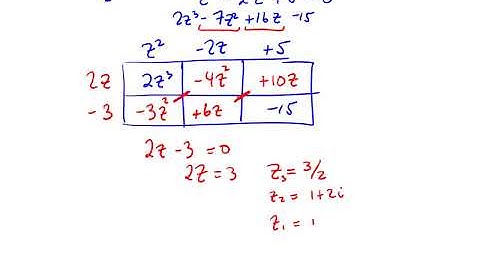 2z³ - 7z² + 16z - 15
z² -2z +5
2z 2z³ -4z² +10z
-3 -3z² +6z -15
2z - 3 = 0
2z = 3 z₃ = 3/2
z₂ = 1+2i
z₁ = 1